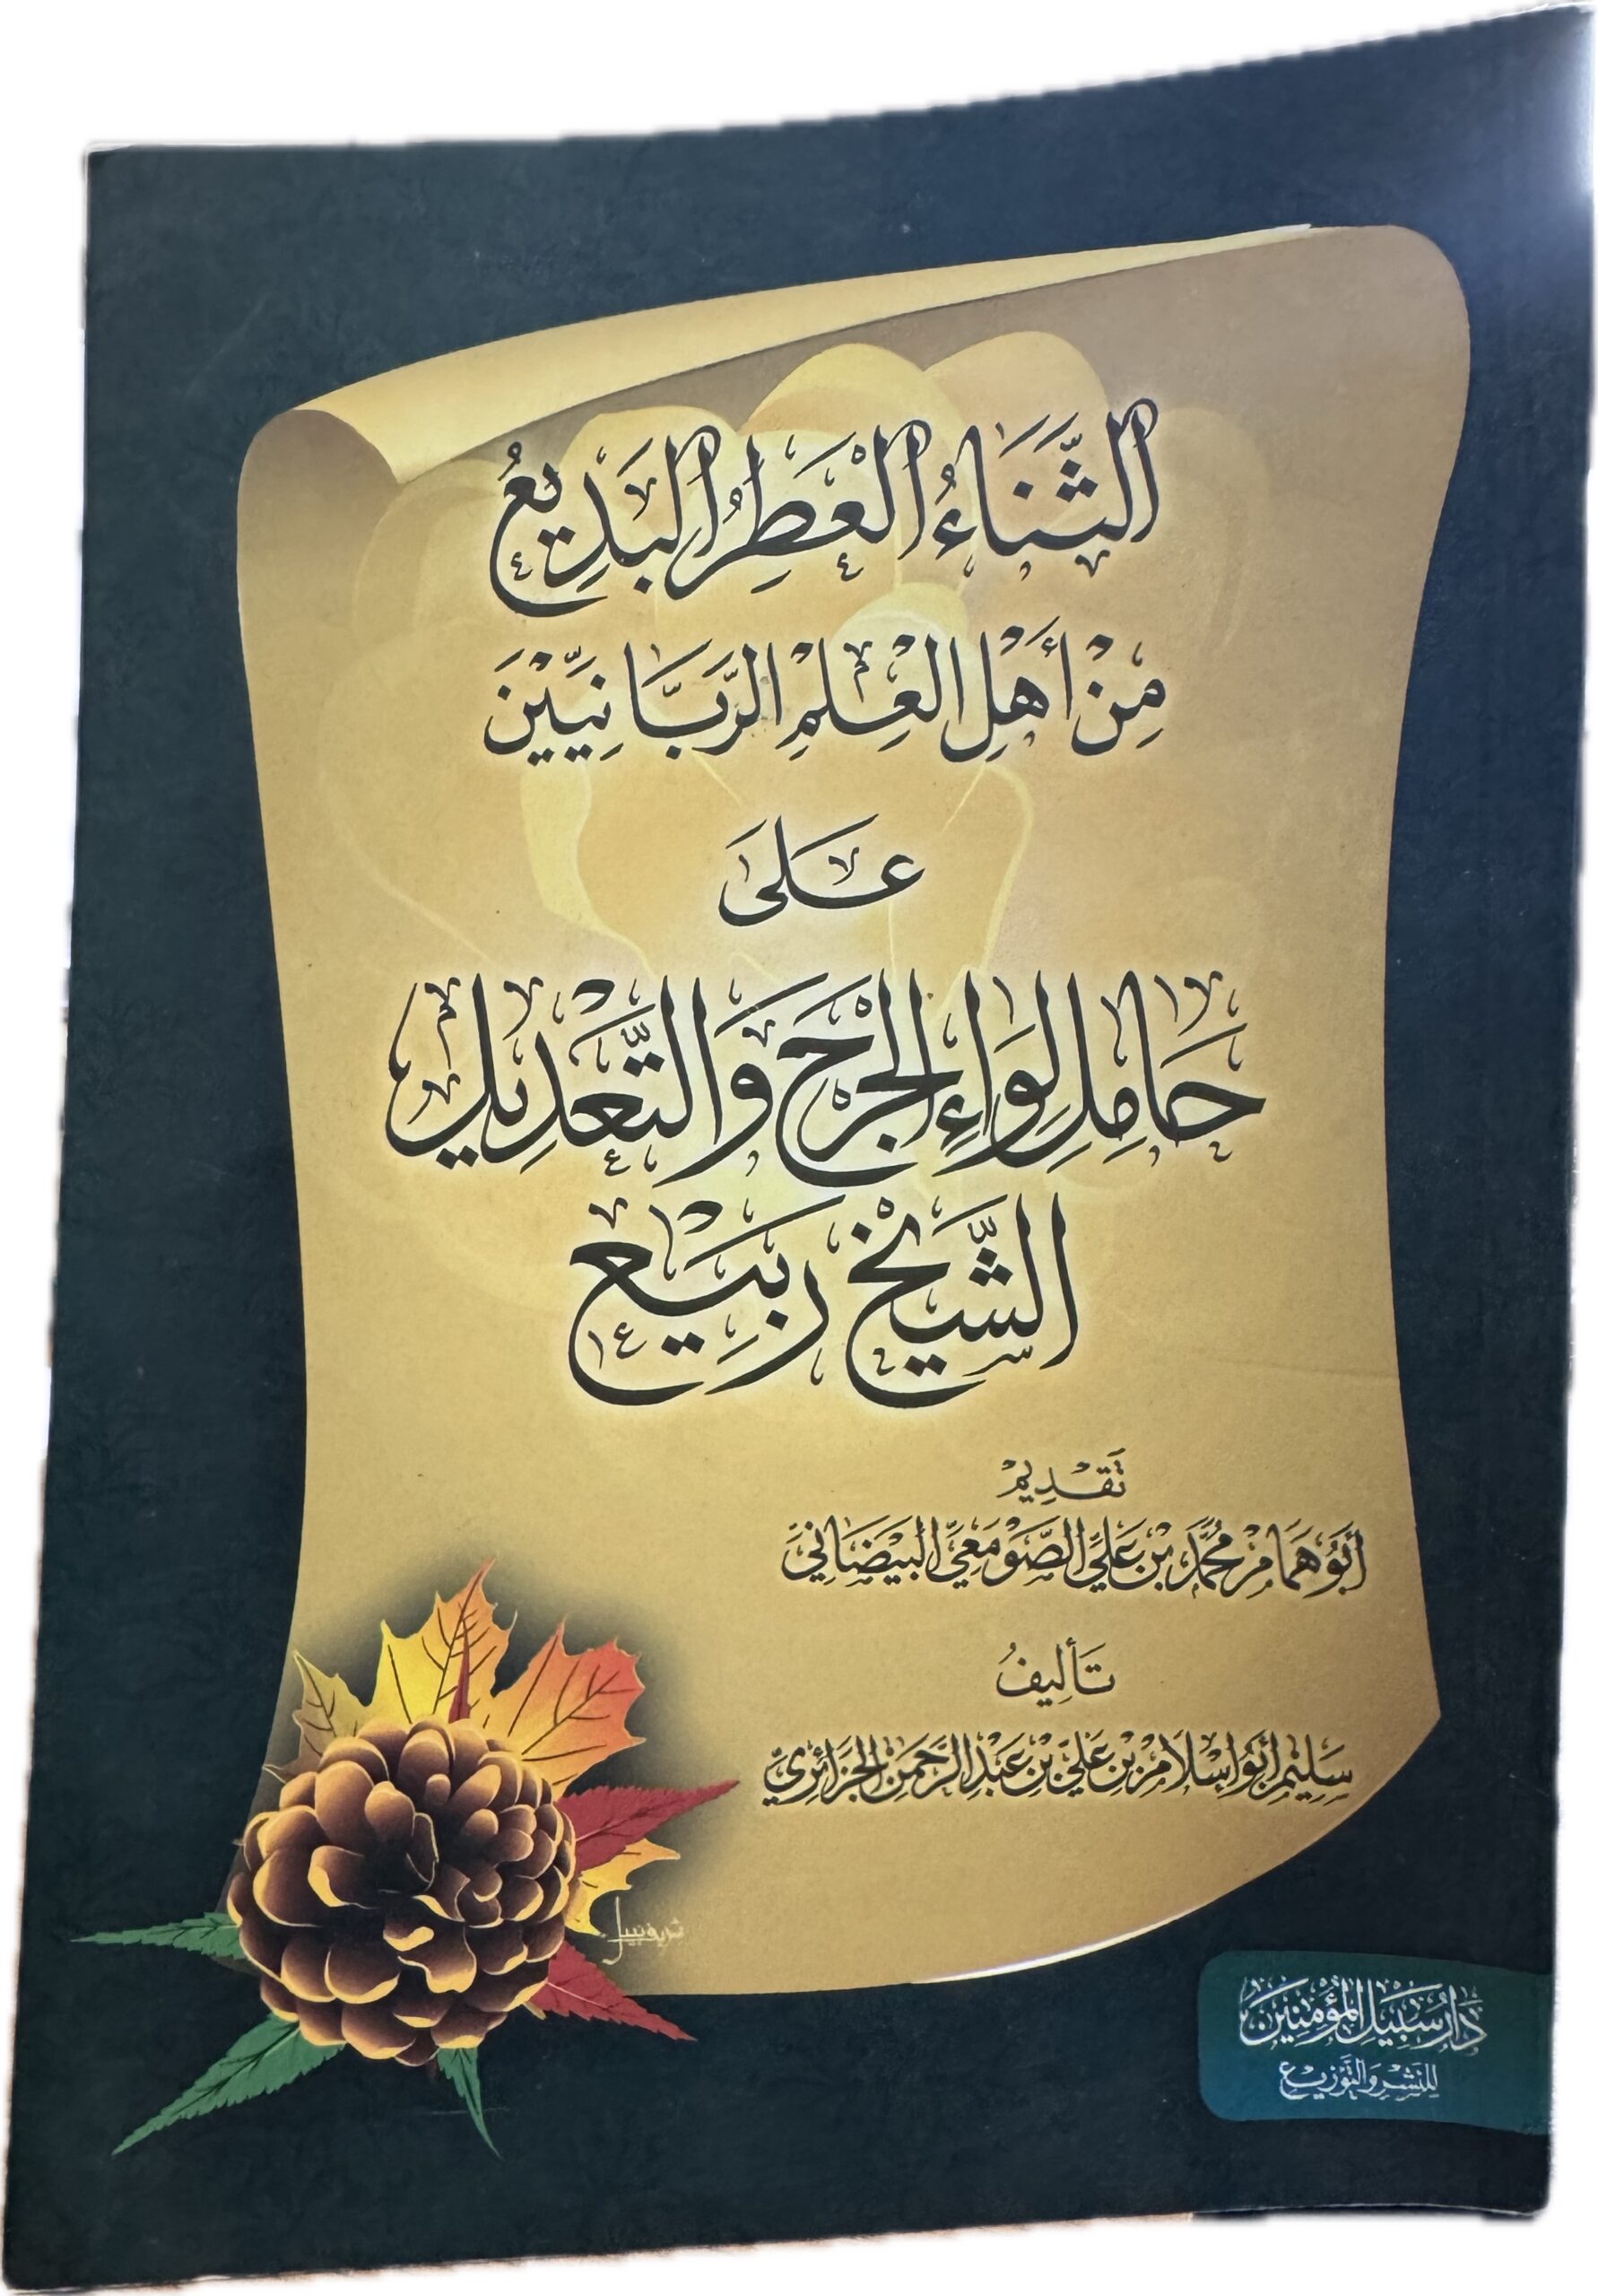 الثَّنَاءُ الْعَطِرُ الْبَدِيعُ
مِنْ أَهْلِ الْعِلْمِ الرَّبَّانِيِّيْنَ
عَلَى
حَامِلِ لِوَاءِ الْجَرْحِ وَالتَّعْدِيلِ
الشَّيْخِ رَبِيْعٍ
تَقْدِيمُ
أَبُو هَمَّامٍ مُحَمَّدُ بْنُ عَلِيٍّ الصَّوْمَعِيُّ الْبَيْضَانِيُّ
تَأْلِيفُ
سَلِيْمِ أَبُو إِسْلَامٍ بْنِ عَلِيِّ بْنِ عَبْدِ الرَّحْمَنِ الْجَزَائِرِيِّ
دَارُ سَبِيْلِ الْمُؤْمِنِيْنَ
لِلنَّشْرِ وَالتَّوْزِيْعِ